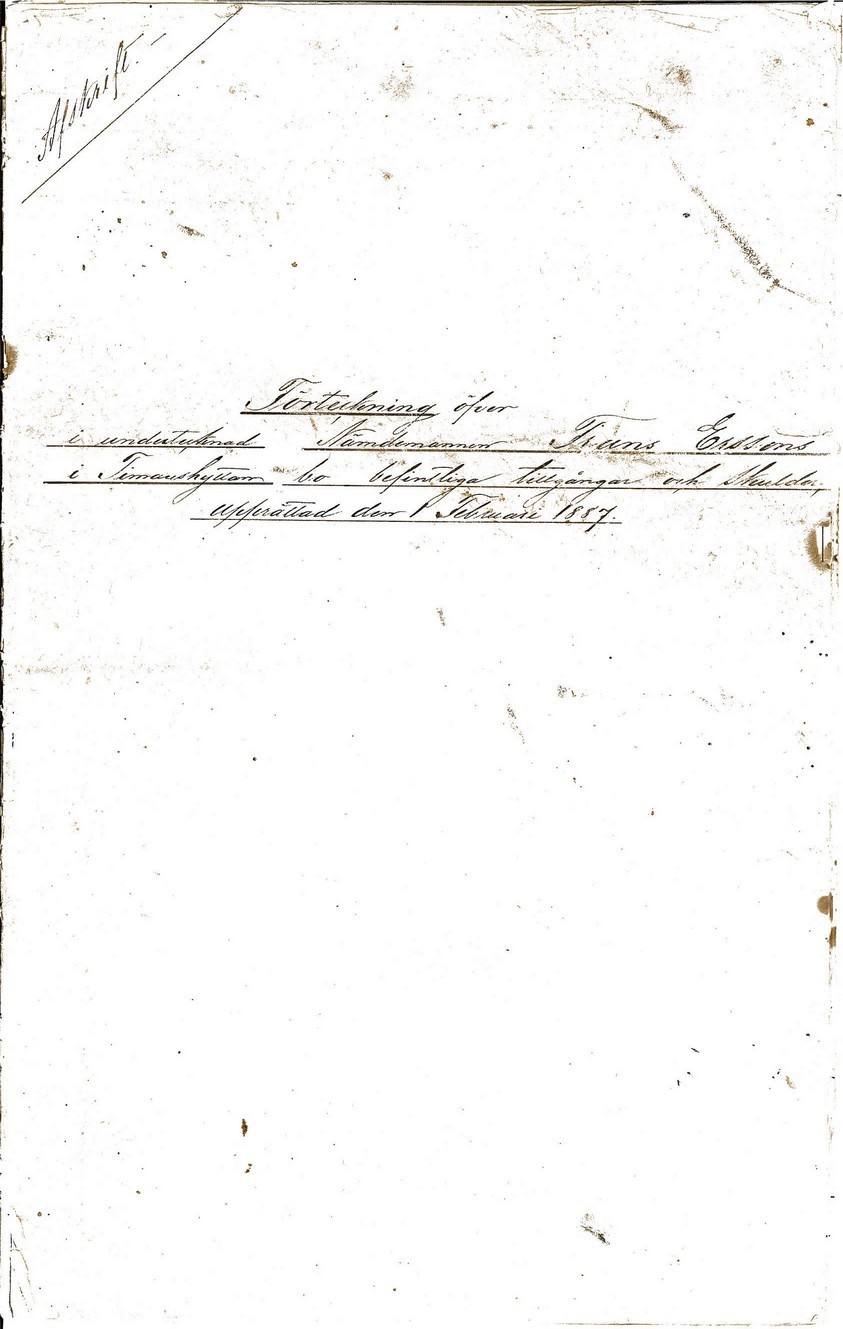 Afskrift. —
Förteckning öfver
i undertecknad Nämdemannen Frans Erssons
i Timanshyttan bo befintliga tillgångar och skulder,
upprättad den 1 Februari 1887.